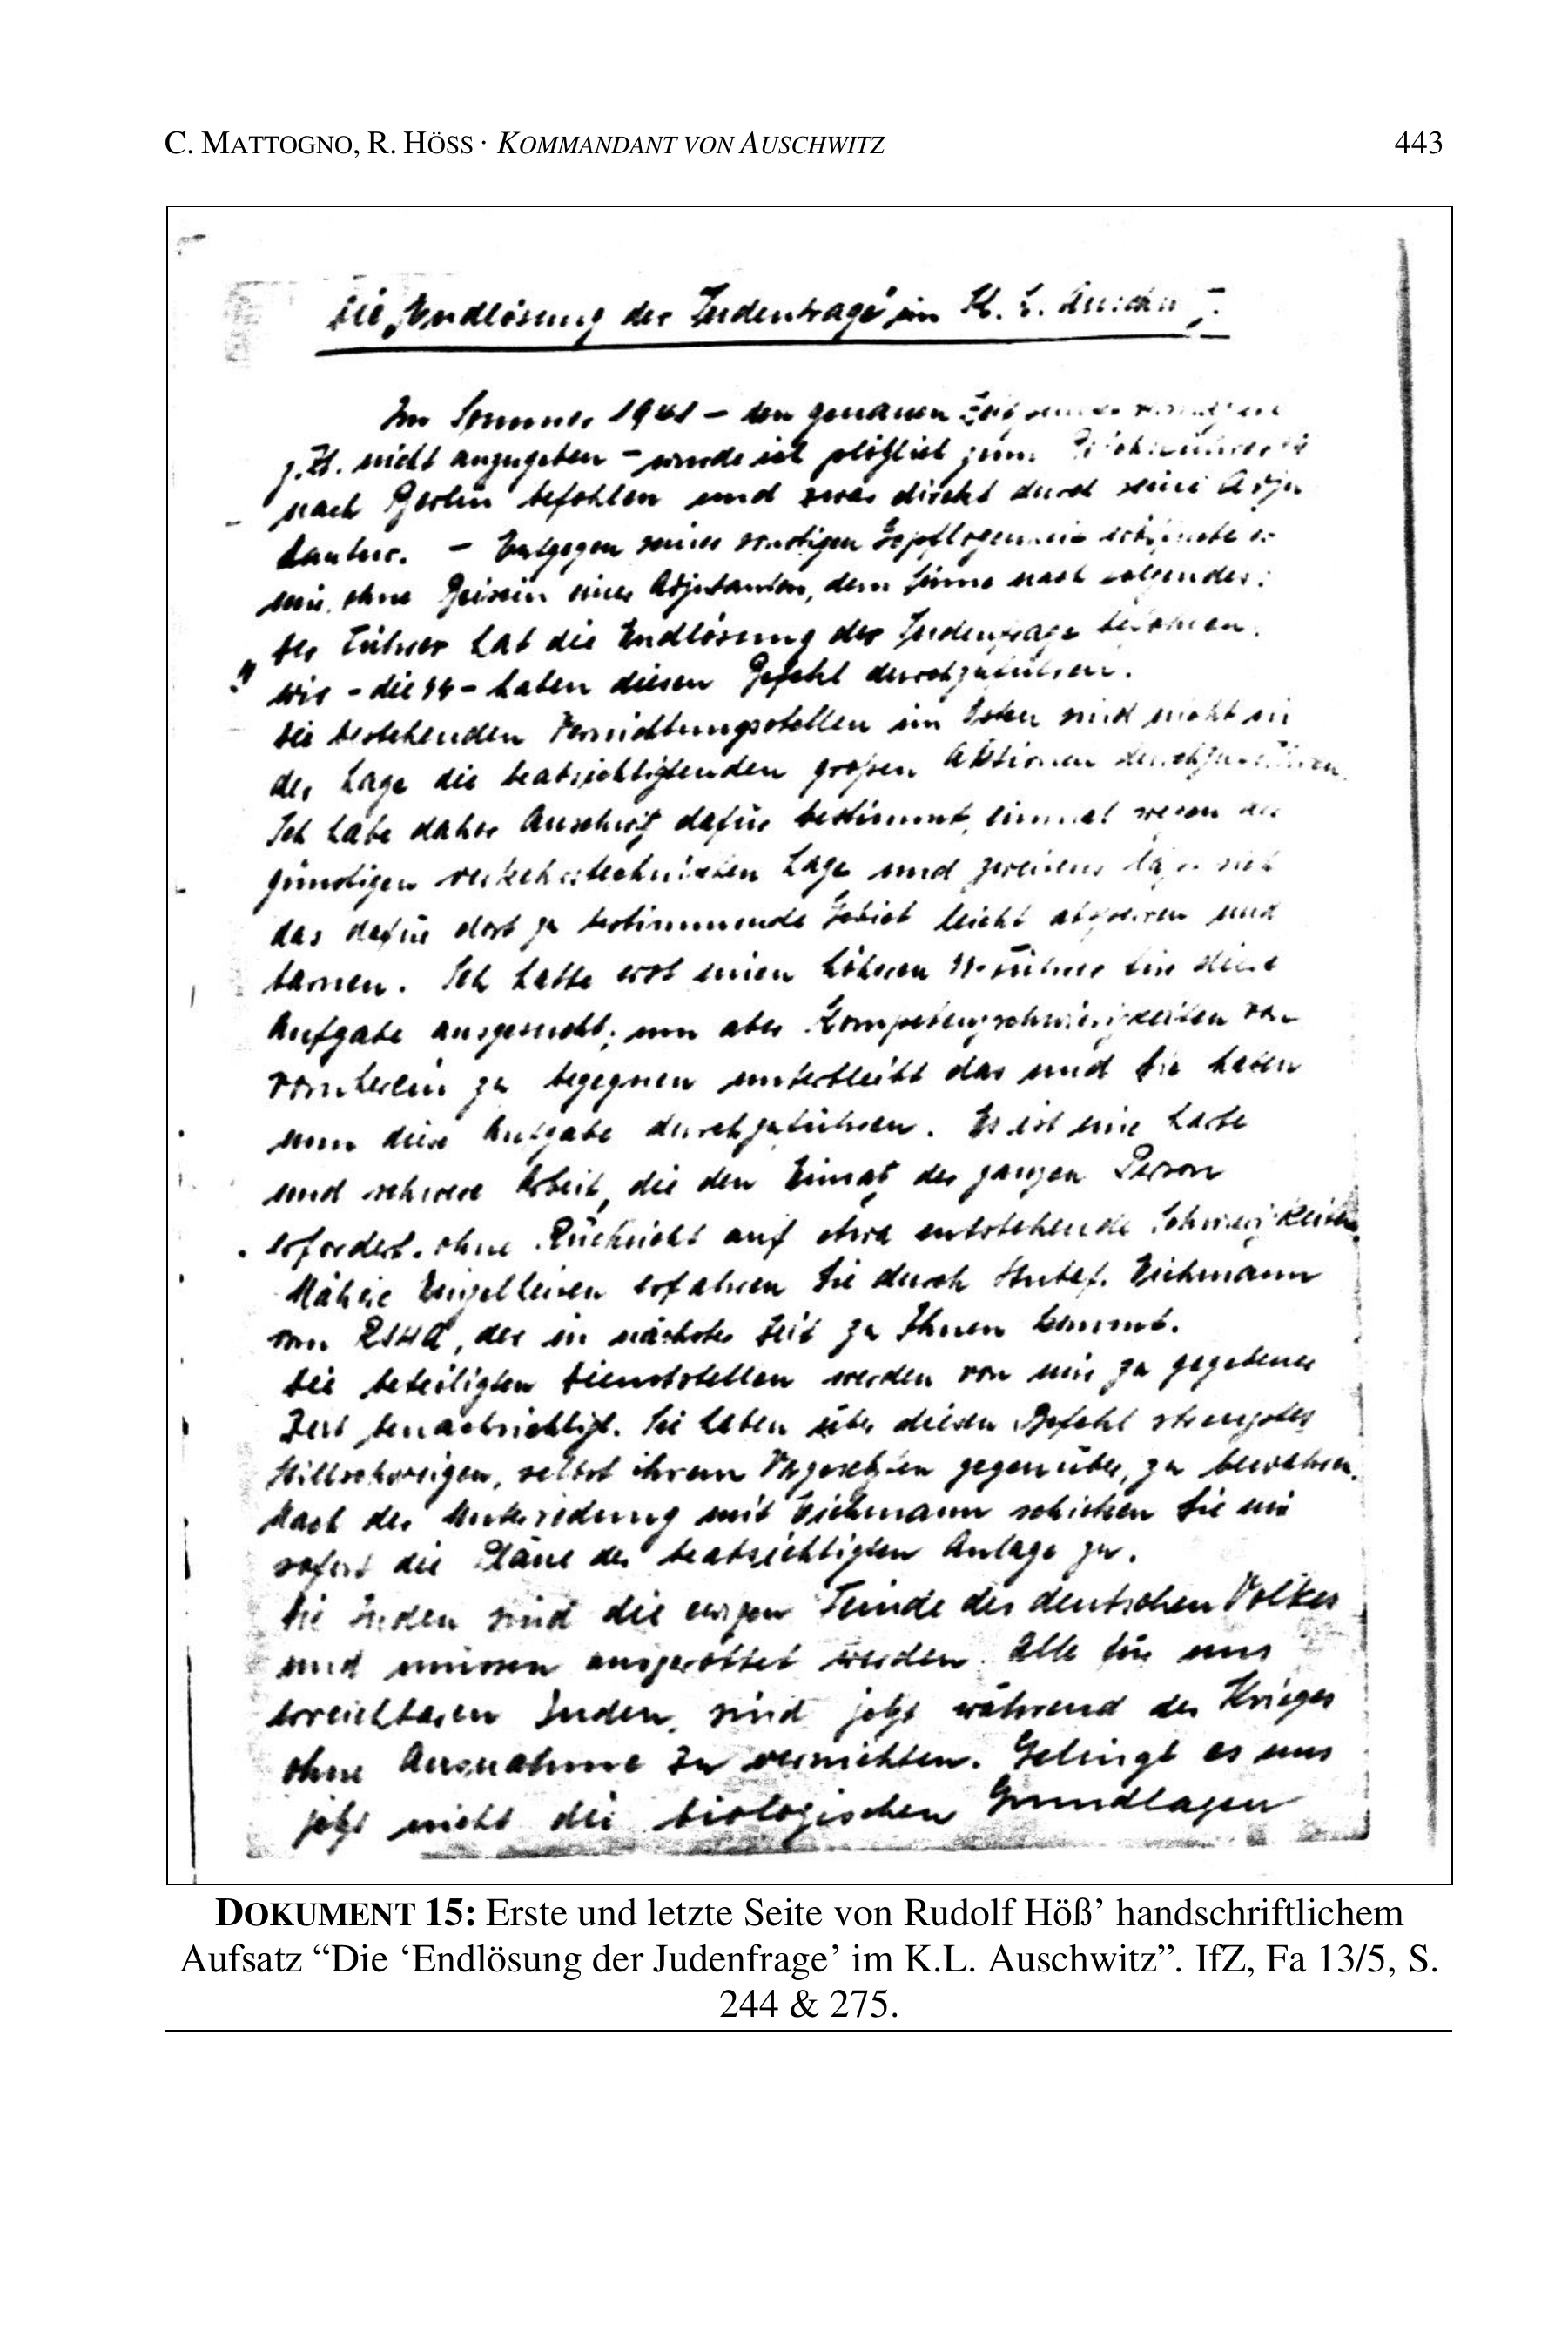 C. MATTOGNO, R. HÖSS · KOMMANDANT VON AUSCHWITZ 443
Die „Endlösung der Judenfrage" im K. L. Auschw
Im Sommer 1941 – den genauen
z. Zt. nicht anzugeben – wurde ich plötzlich zum
nach Berlin befohlen und zwar direkt durch seine Adju
dantur. – Entgegen seiner sonstigen Gepflogenheit eröffnete er
mir, ohne Beisein eines Adjutanten, dem Sinne nach folgendes:
Der Führer hat die Endlösung der Judenfrage befohlen,
wir – die SS – haben diesen Befehl durchzuführen.
Die bestehenden Vernichtungsstellen im Osten sind nicht in
der Lage die beabsichtigtenden großen Aktionen durchzuführen
Ich habe daher Auschwitz dafür bestimmt, einmal wegen der
günstigen verkehrstechnischen Lage und zweitens läßt sich
das dafür dort zu bestimmende Gebiet leicht absperren und
tarnen. Ich hatte erst einen höheren SS-Führer für diese
Aufgabe ausgesucht; um aber Kompetenzschwierigkeiten von
vornherein zu begegnen unterbleibt das und Sie haben
nun diese Aufgabe durchzuführen. Es ist eine harte
und schwere Arbeit, die den Einsatz der ganzen Person
erfordert, ohne Rücksicht auf etwa entstehende Schwierigkeiten
Nähere Einzelheiten erfahren Sie durch Stubaf. Eichmann
vom RSHA, der in nächster Zeit zu Ihnen kommt.
Die beteiligten Dienststellen werden von mir zu gegebener
Zeit benachrichtigt. Sie haben über diesen Befehl strengstes
Stillschweigen, selbst ihrem Vorgesetzten gegenüber, zu bewahren.
Nach der Unterredung mit Eichmann schicken Sie mir
sofort die Pläne der beabsichtigten Anlage zu.
Die Juden sind die ewigen Feinde des deutschen Volkes
und müssen ausgerottet werden. Alle für uns
erreichbaren Juden, sind jetzt während des Krieges
ohne Ausnahme zu vernichten. Gelingt es uns
jetzt nicht die biologischen Grundlagen
DOKUMENT 15: Erste und letzte Seite von Rudolf Höß’ handschriftlichem
Aufsatz “Die ‘Endlösung der Judenfrage’ im K.L. Auschwitz”. IfZ, Fa 13/5, S.
244 & 275.